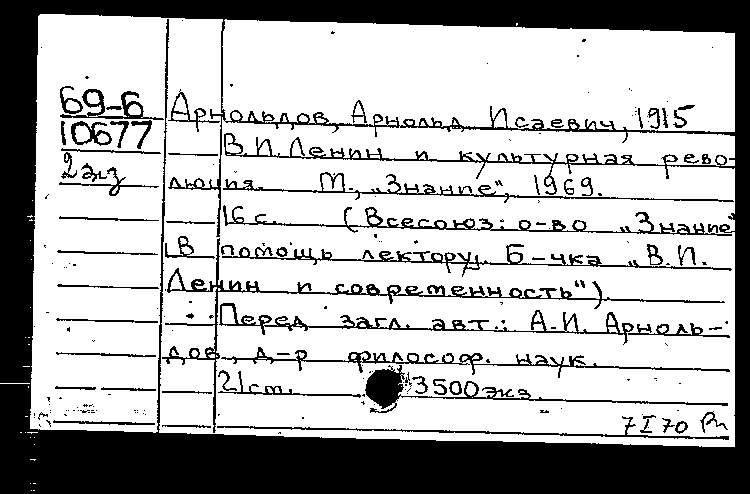 69-6
10677
2 экз
Арнольдов, Арнольд Исаевич, 1915
В.И. Ленин и культурная рево-
люция. М., „Знание", 1969.
16 с. (Всесоюз: о-во „Знание"
В помощь лектору. Б-чка „В.И.
Ленин и современность").
Перед загл. авт.: А.И. Арноль-
дов, д-р философ. наук.
21 ст. 3500 экз.
7 I 70